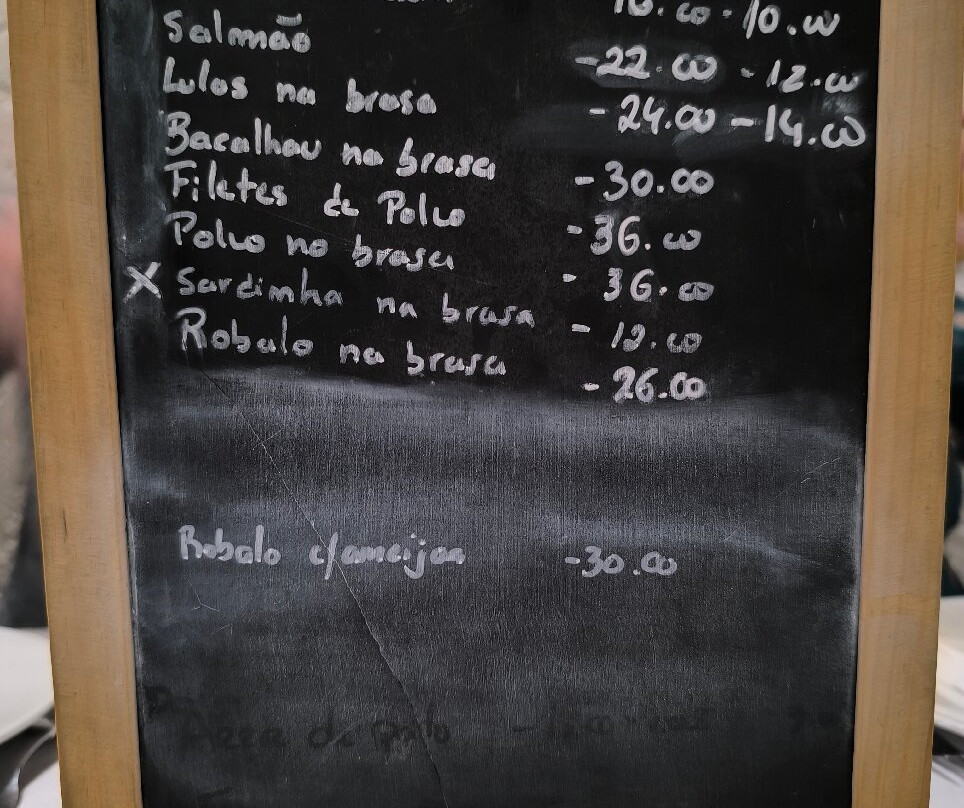 10.00
Salmão -22.00 - 12.00
Lulas na brasa - 24.00 - 14.00
Bacalhau na brasa - 30.00
Filetes de Polvo - 36.00
Polvo na brasa - 36.00
X Sardinha na brasa - 12.00
Robalo na brasa - 26.00
Robalo c/ameijoa -30.00
de pato